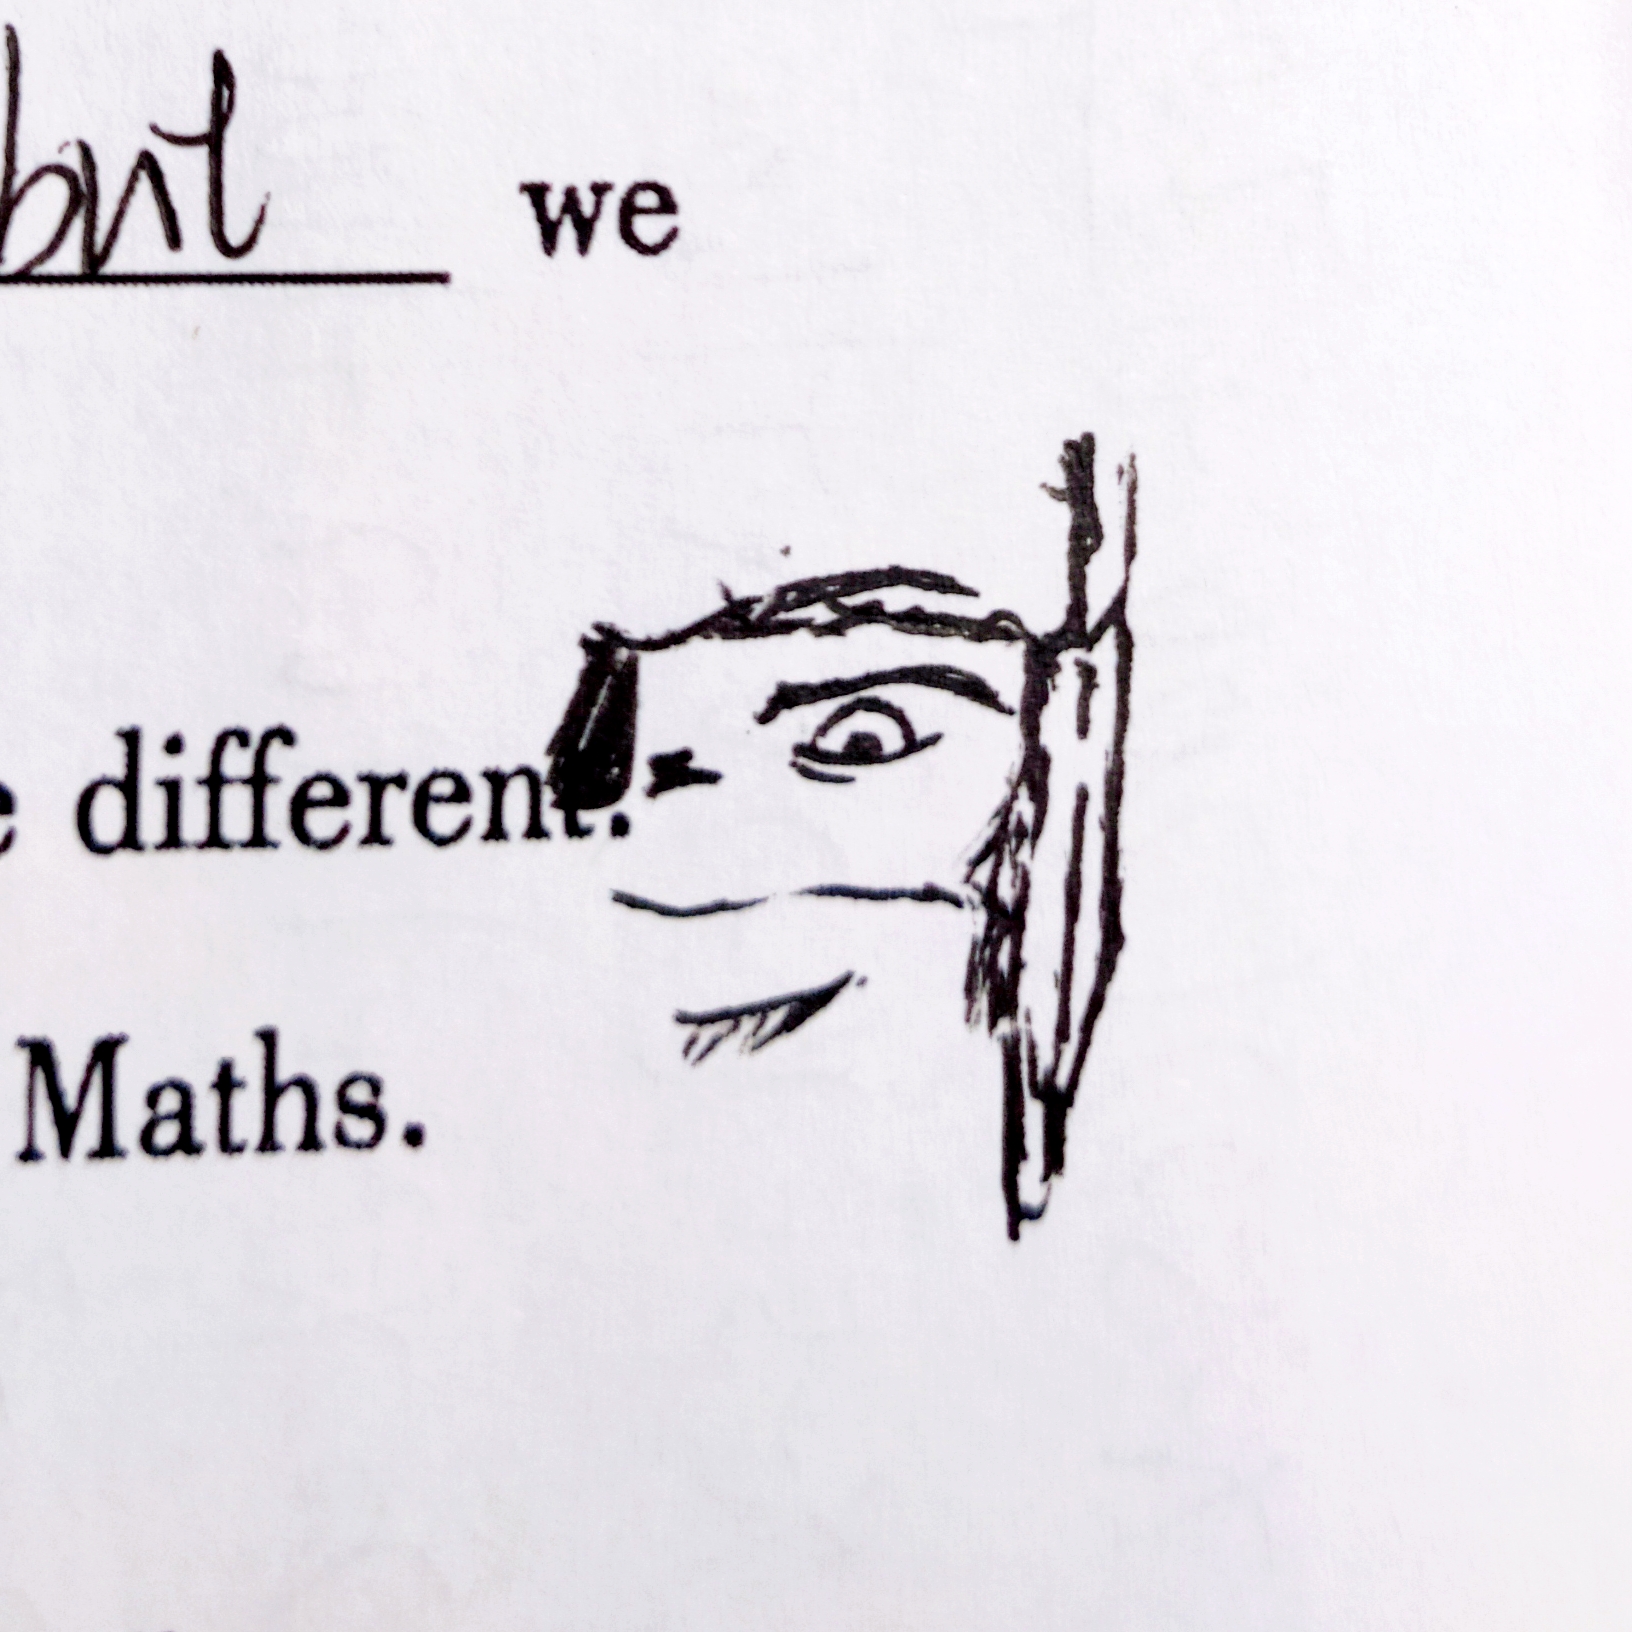 but we
different.
Maths.